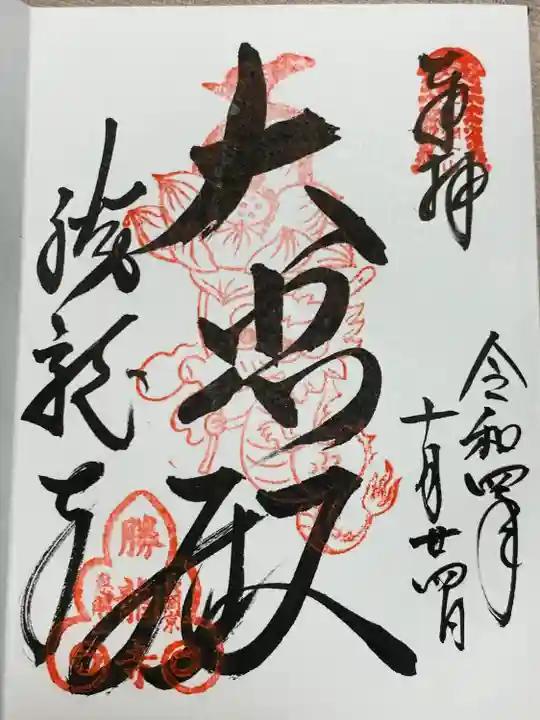 奉拝
令和四年
十月廿四日
大悲殿
勝龍寺
勝龍寺